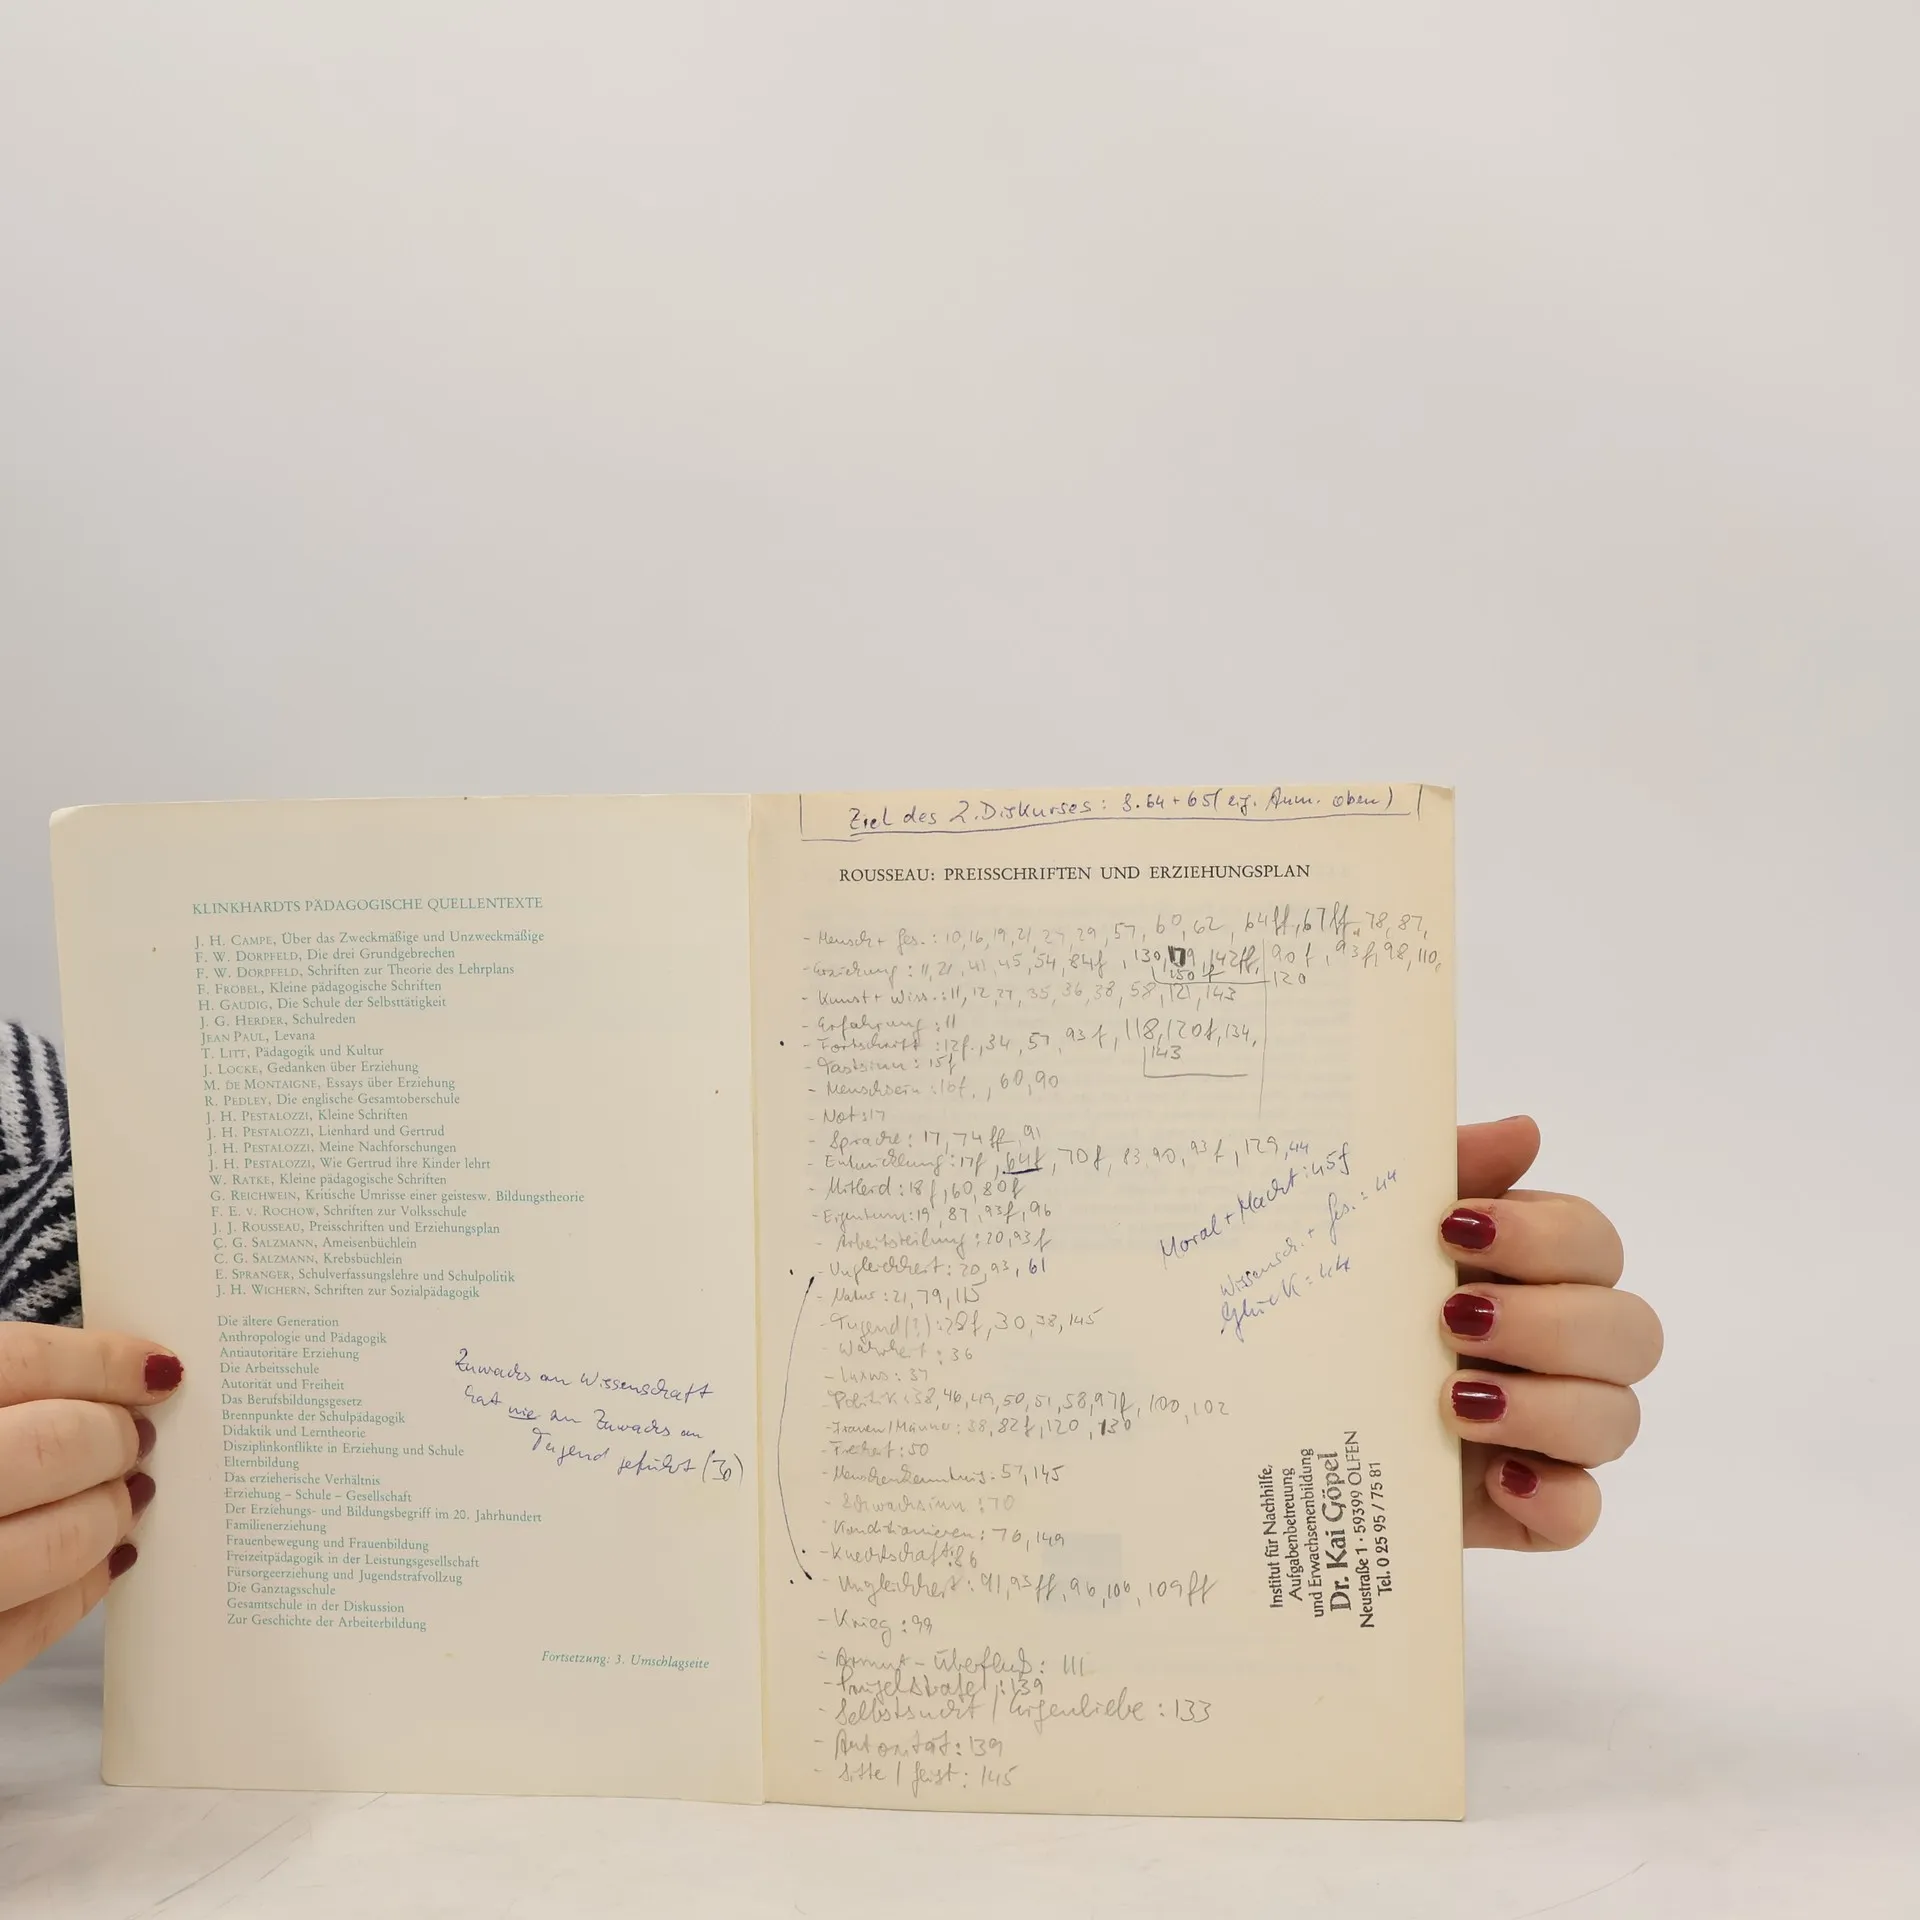 KLINKHARDTS PÄDAGOGISCHE QUELLENTEXTE
J. H. CAMPE, Über das Zweckmäßige und Unzweckmäßige
F. W. DÖRPFELD, Die drei Grundgebrechen
F. W. DÖRPFELD, Schriften zur Theorie des Lehrplans
F. FRÖBEL, Kleine pädagogische Schriften
H. GAUDIG, Die Schule der Selbsttätigkeit
J. G. HERDER, Schulreden
JEAN PAUL, Levana
T. LITT, Pädagogik und Kultur
J. LOCKE, Gedanken über Erziehung
M. DE MONTAIGNE, Essays über Erziehung
R. PEDLEY, Die englische Gesamtoberschule
J. H. PESTALOZZI, Kleine Schriften
J. H. PESTALOZZI, Lienhard und Gertrud
J. H. PESTALOZZI, Meine Nachforschungen
J. H. PESTALOZZI, Wie Gertrud ihre Kinder lehrt
W. RATKE, Kleine pädagogische Schriften
G. REICHWEIN, Kritische Umrisse einer geistesw. Bildungstheorie
F. E. v. ROCHOW, Schriften zur Volksschule
J. J. ROUSSEAU, Preisschriften und Erziehungsplan
C. G. SALZMANN, Ameisenbüchlein
C. G. SALZMANN, Krebsbüchlein
E. SPRANGER, Schulverfassungslehre und Schulpolitik
J. H. WICHERN, Schriften zur Sozialpädagogik
Die ältere Generation
Anthropologie und Pädagogik
Antiautoritäre Erziehung
Die Arbeitsschule
Autorität und Freiheit
Das Berufsbildungsgesetz
Brennpunkte der Schulpädagogik
Didaktik und Lerntheorie
Disziplinkonflikte in Erziehung und Schule
Elternbildung
Das erzieherische Verhältnis
Erziehung – Schule – Gesellschaft
Der Erziehungs- und Bildungsbegriff im 20. Jahrhundert
Familienerziehung
Frauenbewegung und Frauenbildung
Freizeitpädagogik in der Leistungsgesellschaft
Fürsorgeerziehung und Jugendstrafvollzug
Die Ganztagsschule
Gesamtschule in der Diskussion
Zur Geschichte der Arbeiterbildung
Fortsetzung: 3. Umschlagseite
Zuwachs an Wissenschaft
hat nie zu Zuwachs an
Tugend geführt (30)
Ziel des 2. Diskurses: S. 64 + 65 (eig. Anm. oben)
ROUSSEAU: PREISSCHRIFTEN UND ERZIEHUNGSPLAN
- Mensch + Ges.: 10, 16, 19, 21, 27, 29, 57, 60, 62, 64ff, 67ff, 78, 87,
90f, 93f, 98, 110,
120
- Erziehung: 11, 21, 41, 45, 54, 84f, 130, 142ff,
150f
- Kunst + Wiss.: 11, 12, 27, 35, 36, 38, 58, 121, 143
- Erfahrung: 11
- Fortschritt: 12f., 34, 57, 93f, 118, 120f, 134,
143
- Tastsinn: 15f
- Menschsein: 16f., 60, 90
- Not: 17
- Sprache: 17, 74ff, 91
- Entwicklung: 17f, 64f, 70f, 83, 90, 93f, 129, 44
- Mitleid: 18f, 60, 80f
- Eigentum: 19, 87, 93f, 96
- Arbeitsteilung: 20, 93f
- Ungleichheit: 20, 93, 61
- Natur: 21, 79, 115
- Tugend (?): 28f, 30, 38, 145
- Wahrheit: 36
- Luxus: 37
- Politik: 38, 46, 49, 50, 51, 58, 97f, 100, 102
- Frauen/Männer: 38, 82f, 120, 130
- Freiheit: 50
- Menschenkenntnis: 57, 145
- Schwachsinn: 70
- Konditionieren: 76, 149
- Knechtschaft: 86
- Ungleichheit: 91, 95ff, 96, 106, 109ff
- Krieg: 99
- Armut - Überfluß: 111
- Prügelstrafe: 139
- Selbstsucht / Eigenliebe: 133
- Autorität: 139
- Sitte / Geist: 145
Moral + Macht: 45f
Wissensch. + Ges.: 44
Glück: 44
Institut für Nachhilfe,
Aufgabenbetreuung
und Erwachsenenbildung
Dr. Kai Göpel
Neustraße 1 · 59399 OLFEN
Tel. 0 25 95 / 75 81